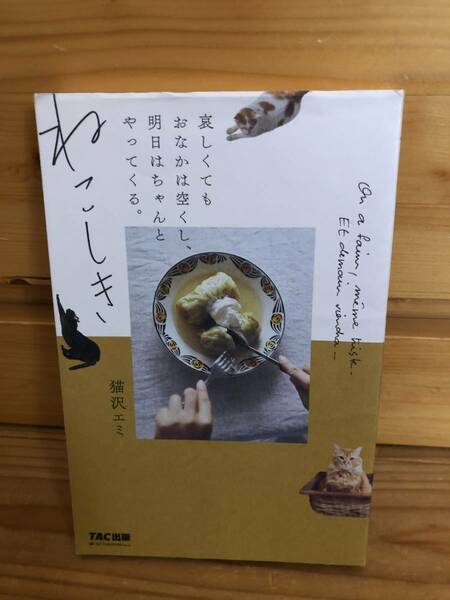 ねこしき
哀しくても
おなかは空くし、
明日はちゃんと
やってくる。
On a faim, même triste.
Et demain viendra_
猫沢エミ
TAC出版